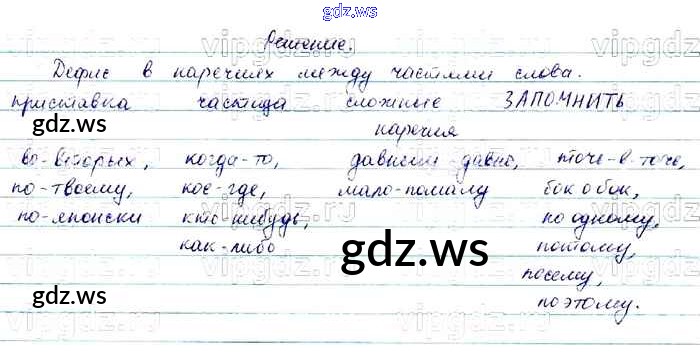 gdz.ws
Решение.
Дефис в наречиях между частями слова.
приставка частица сложные ЗАПОМНИТЬ
наречия
во-вторых, когда-то, давным-давно, точь-в-точь,
по-твоему, кое-где, мало-помалу бок о бок,
по-японски кто-нибудь, по одному,
как-либо потому,
посему,
поэтому.
gdz.ws
gdz.ws
gdz.ws
gdz.ws